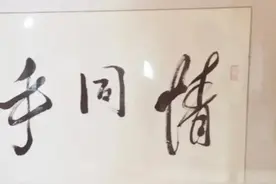 情同手